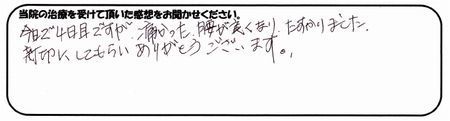 当院の治療を受けて頂いた感想をお聞かせください。
今日で4日目ですが、痛かった腰が良くなり、たすかりました。
親切にしてもらいありがとうございます。